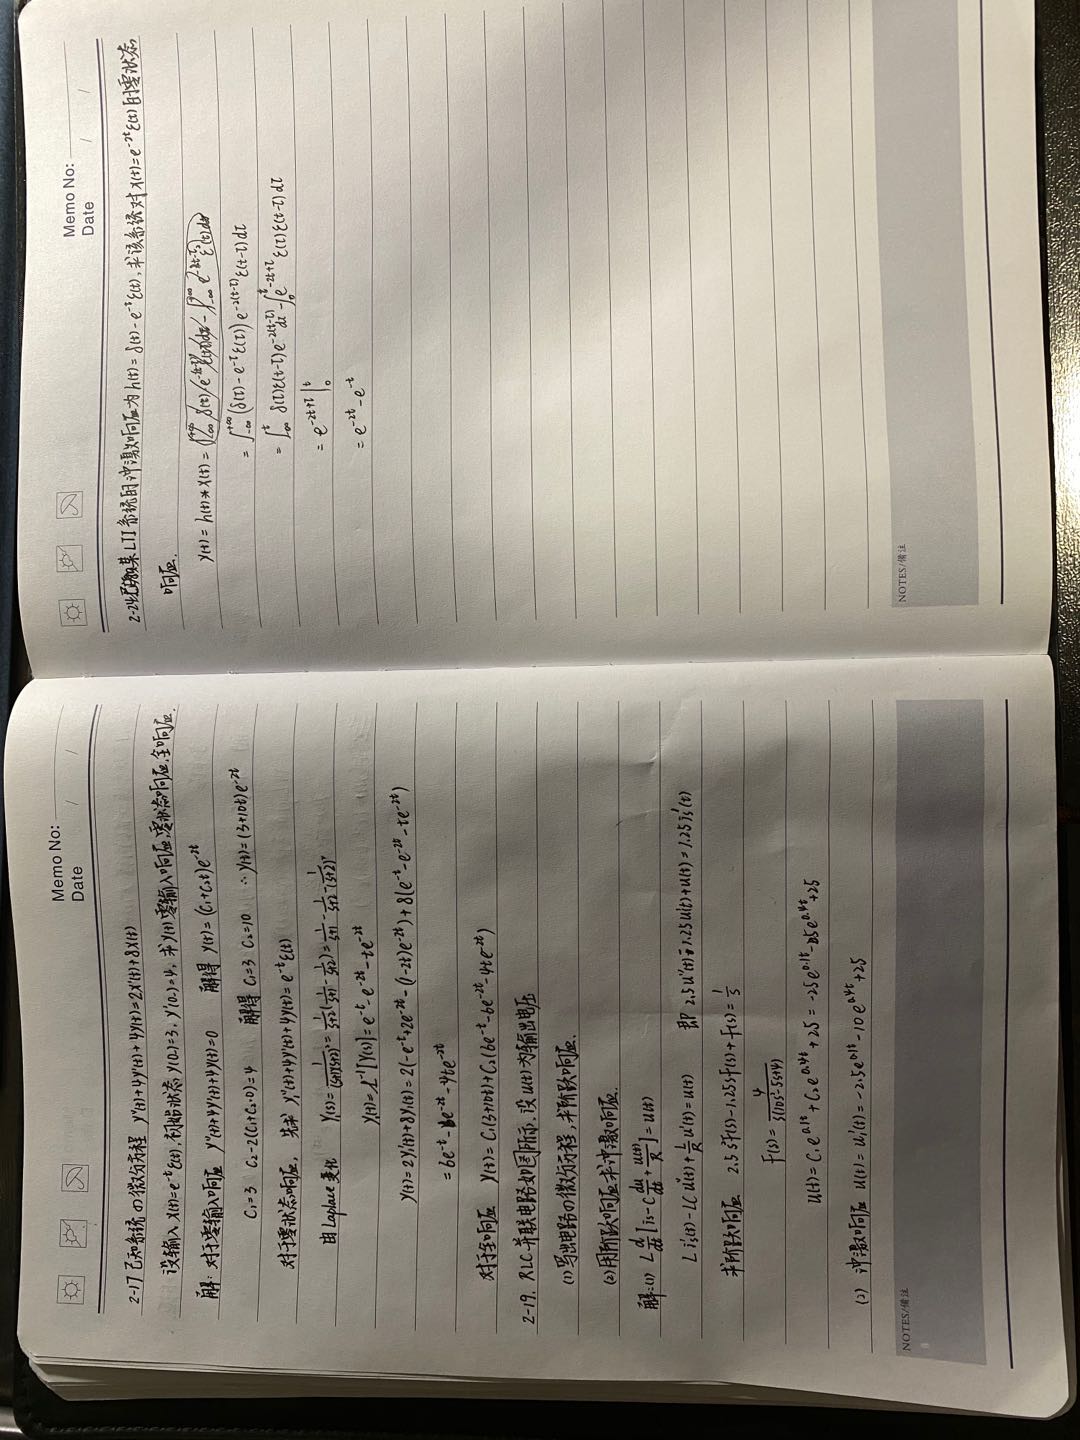 Memo No:
Date / /
2-17 已知系统の微分方程 y''(t)+4y'(t)+4y(t)=2x'(t)+8x(t)
设输入 x(t)=e^{-t}ε(t), 初始状态 y(0-)=3, y'(0-)=4, 求y(t)零输入响应,零状态响应,全响应.
解: 对于零输入响应 y''(t)+4y'(t)+4y(t)=0 解得 y(t)=(C₁+C₂t)e^{-2t}
C₁=3 C₂-2(C₁+C₂·0)=4 解得 C₁=3 C₂=10 ∴y(t)=(3+10t)e^{-2t}
对于零状态响应, 先求 y₁''(t)+4y₁'(t)+4y₁(t)=e^{-t}ε(t)
由Laplace变化
y₁(t)=L^{-1}[Y₁(s)]=e^{-t}-e^{-2t}-te^{-2t}
y(t)=2y₁'(t)+8y₁(t)=2(-e^{-t}+2e^{-2t}-(-2t)e^{-2t})+8(e^{-t}-e^{-2t}-te^{-2t})
=6e^{-t}-6e^{-2t}-4te^{-2t}
对于全响应 y(t)=C₁(3+10t)+C₂(6e^{-t}-6e^{-2t}-4te^{-2t})
2-19. RLC并联电路如图所示, 设u(t)为输出电压
(1)写出电路の微分方程, 求阶跃响应.
(2)用阶跃响应求冲激响应.
解:(1) L d/dt[is-C du/dt+u(t)/R]=u(t)
L is'(t)-LC u''(t)+L/R u'(t)=u(t) 即 2.5u''(t)
求阶跃响应 2.5s²F(s)-1.25sF(s)+F(s)=1/s
F(s)=4/s(10s²-5s+4)
u(t)=C₁e^{0.1t}+C₂e^{0.4t}+25=-25e^{0.1t}-25e^{0.4t}+25
(2) 冲激响应 u(t)=u₁'(t)=-2.5e^{0.1t}-10e^{0.4t}+25
NOTES/備注
Memo No:
Date / /
2-24 某LTI系统的冲激响应为h(t)=δ(t)-e^{-t}ε(t), 求该系统对x(t)=e^{-2t}ε(t)的零状态
响应.
y(t)=h(t)*x(t)=
=∫_{-∞}^{+∞}(δ(τ)-e^{-τ}ε(τ))e^{-2(t-τ)}ε(t-τ)dτ
=∫_{-∞}^{t}δ(τ)ε(t-τ)e^{-2(t-τ)}dτ-∫_{0}^{t}e^{-2t+τ}ε(τ)ε(t-τ)dτ
=e^{-2t+τ}|₀^t
=e^{-2t}-e^{-t}
NOTES/備注